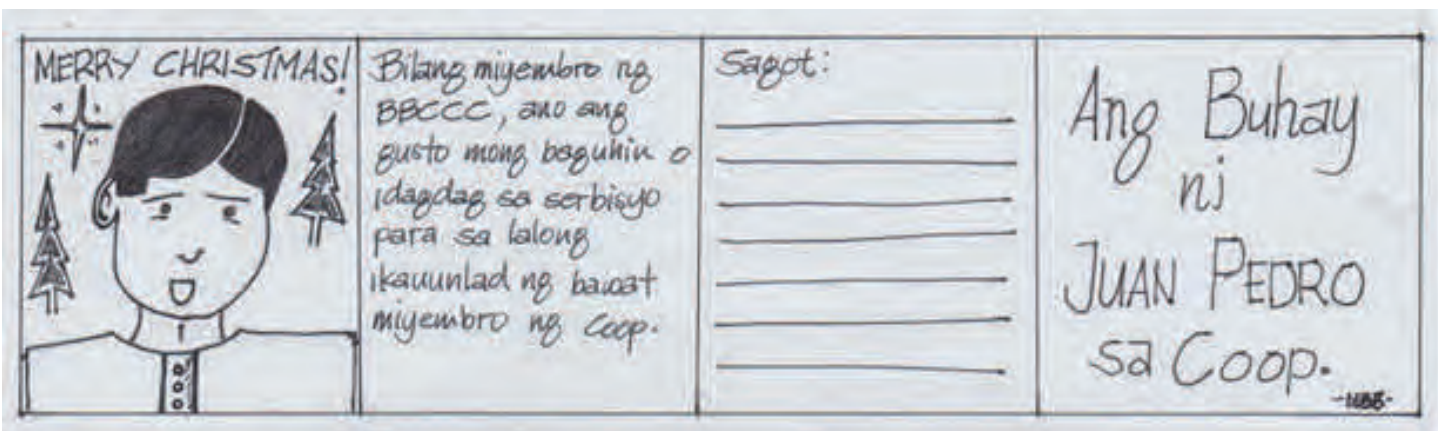 MERRY CHRISTMAS!
Bilang miyembro ng
BBCCC, ano ang
gusto mong baguhin o
idagdag sa serbisyo
para sa lalong
ikauunlad ng bawat
miyembro ng Coop.
Sagot:
Ang Buhay
ni
JUAN PEDRO
sa Coop.